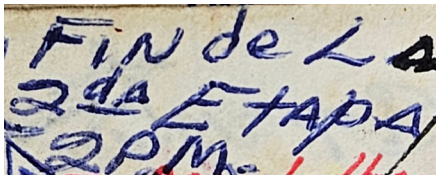 FiN de LA
2da EtApA
2PM.